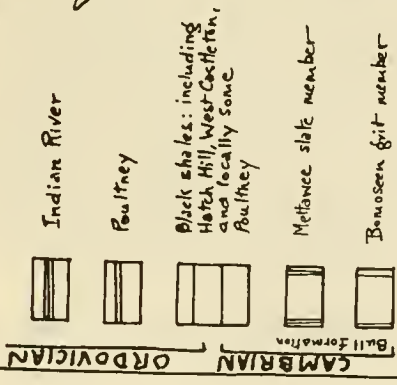 Indian River
Poultney
Black shales: including
Hatch Hill, West Castleton,
and locally some
Poultney
Mettawee slate member
Bomoseen grit member
Bull formation
ORDOVICIAN
CAMBRIAN